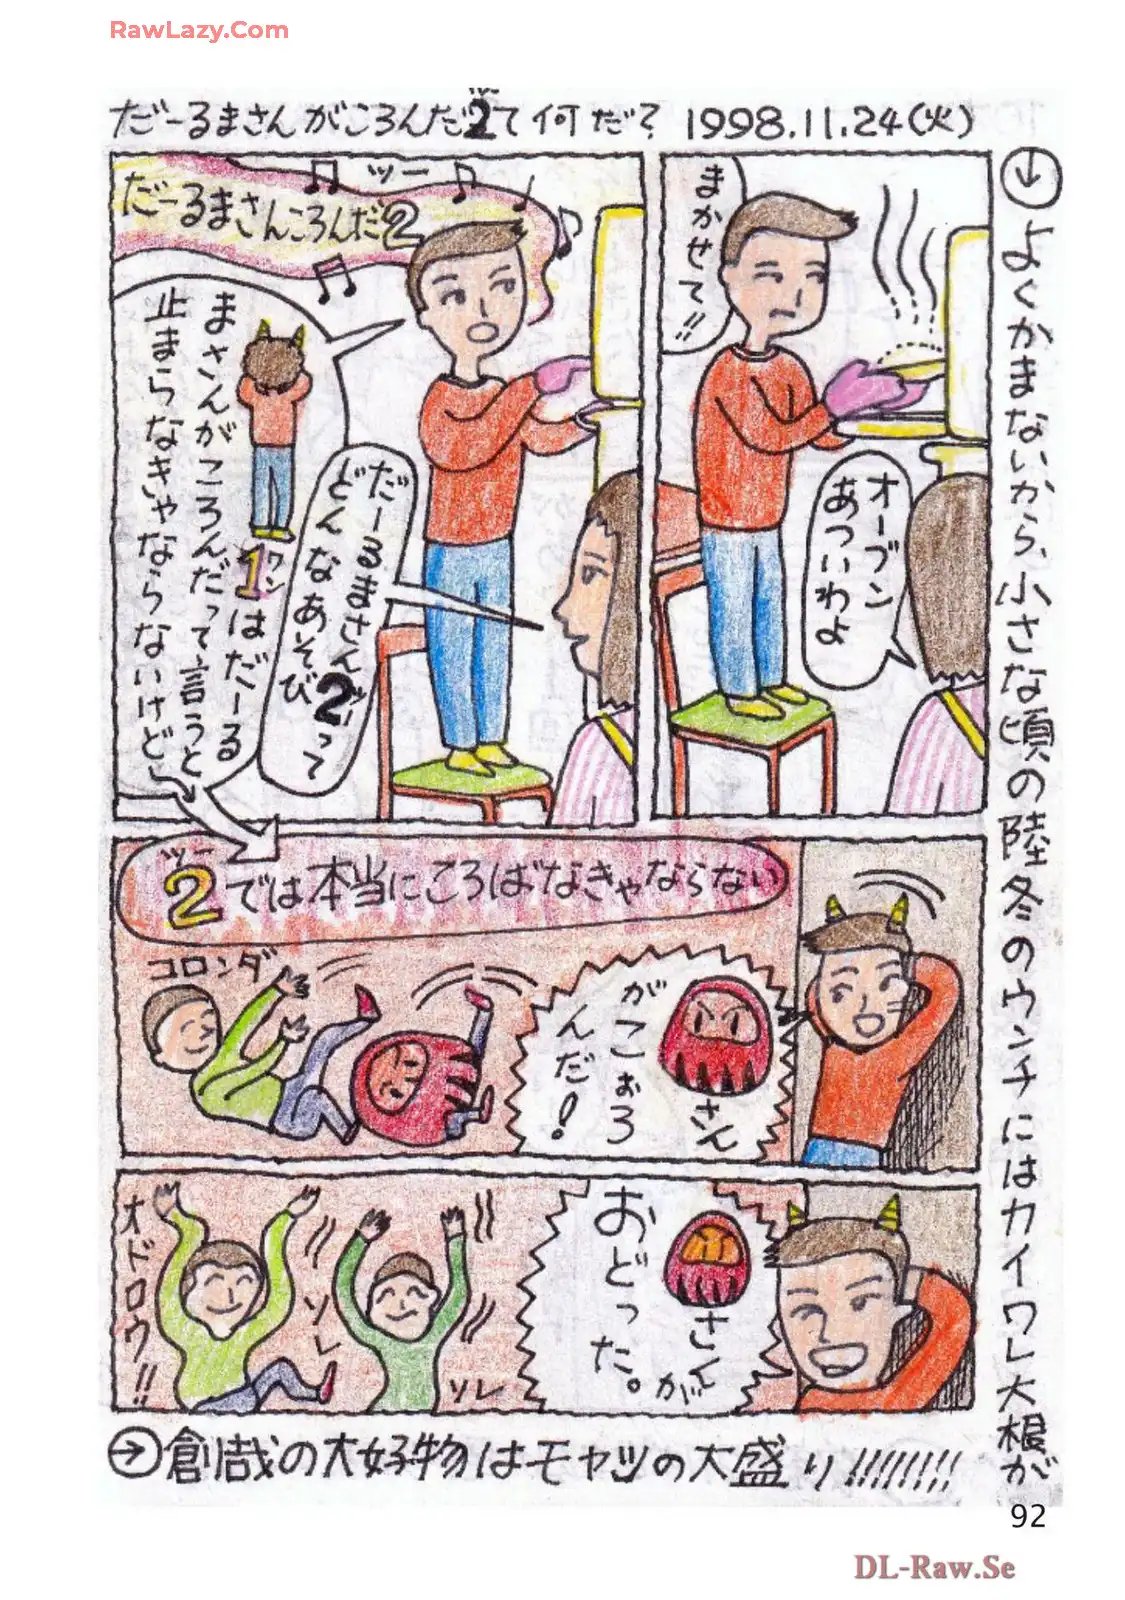 RawLazy.Com
だーるまさんがころんだ2て何だ? 1998.11.24(火)
ツー
↓よくかまないから、小さな頃の陸冬のウンチにはカイワレ大根が
まかせて!!
オーブン
あついわよ
ツー
だーるまさんころんだ2
1はだーる
ワン
まさんがころんだって言うと
止まらなきゃならないけど、
だーるまさん2って
ツー
どんなあそび
ツー
2では本当にころばなきゃならない
コロンダ
さん
がこぉろ
んだ!
さんが
おどった。
オドロウ!!
ソレ
ソレ
→創哉の大好物はモヤシの大盛り!!!!!!!!
92
DL-Raw.Se